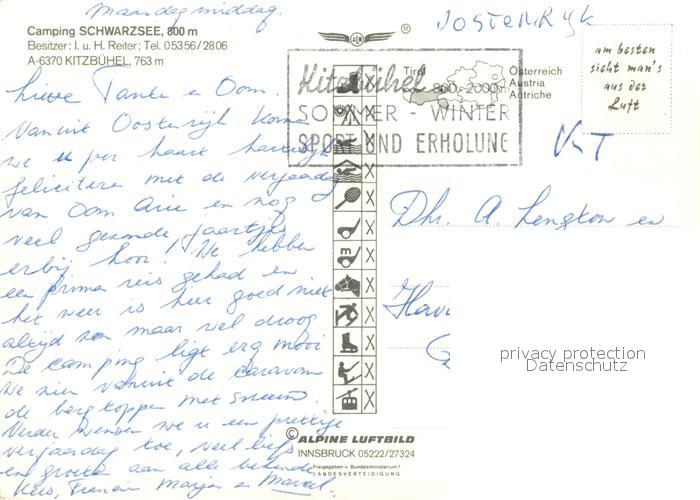 maandagmiddag.
JOSTENRYK
Camping SCHWARZSEE, 800 m
Besitzer: I. u. H. Reiter; Tel. 05356/2806
A-6370 KITZBÜHEL, 763 m
am besten
sieht man's
aus der
Luft
Kitzbühel Tirol
800-2000m
Österreich
Austria
Autriche
SOMMER - WINTER
SPORT UND ERHOLUNG
Lieve Tante en Oom.
Vanuit Oostenrijk komen
we u per kaart hartelijk
feliciteren met de verjaardag
van Oom Arie en nog
veel gezonde jaartjes
erbij hoor! We hebben
een prima reis gehad en
het weer is hier goed niet
altijd zon maar wel droog
De camping ligt erg mooi
We zien vanuit de caravan
de bergtoppen met sneeuw.
Verder wensen we u een prettige
verjaardag toe, veel liefs
en groeten aan alle bekenden
Kees, Francin Marjan en Marcel.
Dhr. A. en
privacy protection
Datenschutz
© ALPINE LUFTBILD
INNSBRUCK 05222/27324
Freigegeben v. Bundesministerium f.
LANDESVERTEIDIGUNG